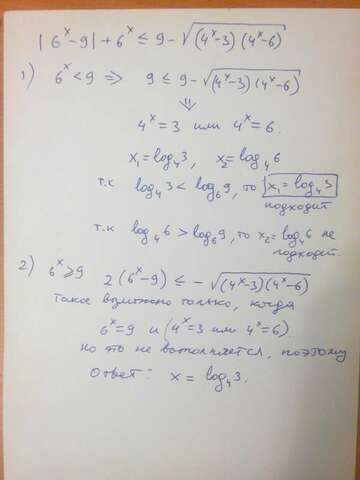 |6^x-9|+6^x ≤ 9-√((4^x-3)(4^x-6))
1) 6^x < 9 ⇒ 9 ≤ 9-√((4^x-3)(4^x-6))
⇓
4^x = 3 или 4^x = 6.
x₁ = log₄3, x₂ = log₄6
т.к log₄3 < log₆9, то x₁ = log₄3
подходит
т.к log₄6 > log₆9, то x₂ = log₄6 не
подходит.
2) 6^x ≥ 9 2(6^x-9) ≤ -√((4^x-3)(4^x-6))
Такое возможно только, когда
6^x = 9 и (4^x = 3 или 4^x = 6)
но это не выполняется, поэтому
Ответ: x = log₄3.